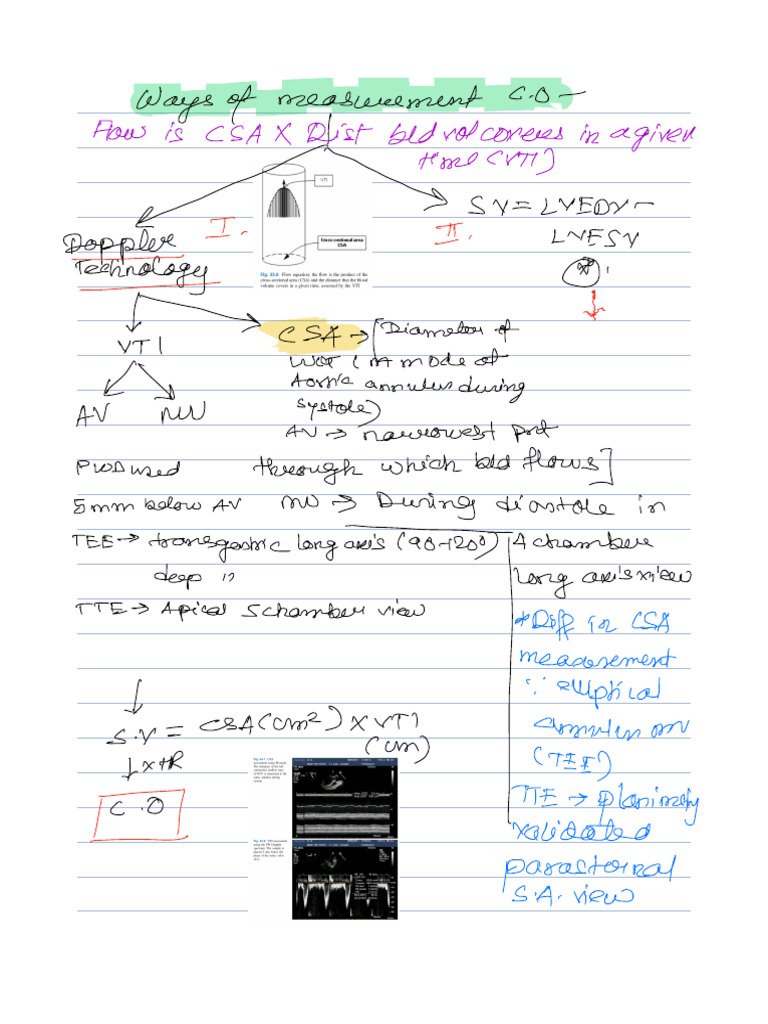 Ways of measurement C.O -
Flow is CSA X Dist bld vol coveres in a given
time (VTI)
VTI
Cross-sectional area
CSA
Fig. 25.6 Flow equation: the flow is the product of the
cross-sectional area (CSA) and the distance that the blood
volume covers in a given time, assessed by the VTI
I.
Doppler
Technology
II.
SV = LVEDV -
LVESV
*
VTI
AV MV
PWD used
5mm below AV
CSA → [Diameter of
LVOT (M mode of
Aortic annulus during
systole)
AV → narrowest part
through which bld flows]
MV → During diastole in
4 chamber
long axis view
TEE → transgastric long axis (90-120°)
deep "
TTE → Apical 5 chamber view
* Diff in CSA
measurement
∵ elliptical
annulus MV
(TEE)
TTE → Planimetry
validated
parasternal
S.A. view
S.V = CSA (cm²) X VTI
(cm)
↓ X HR
C.O